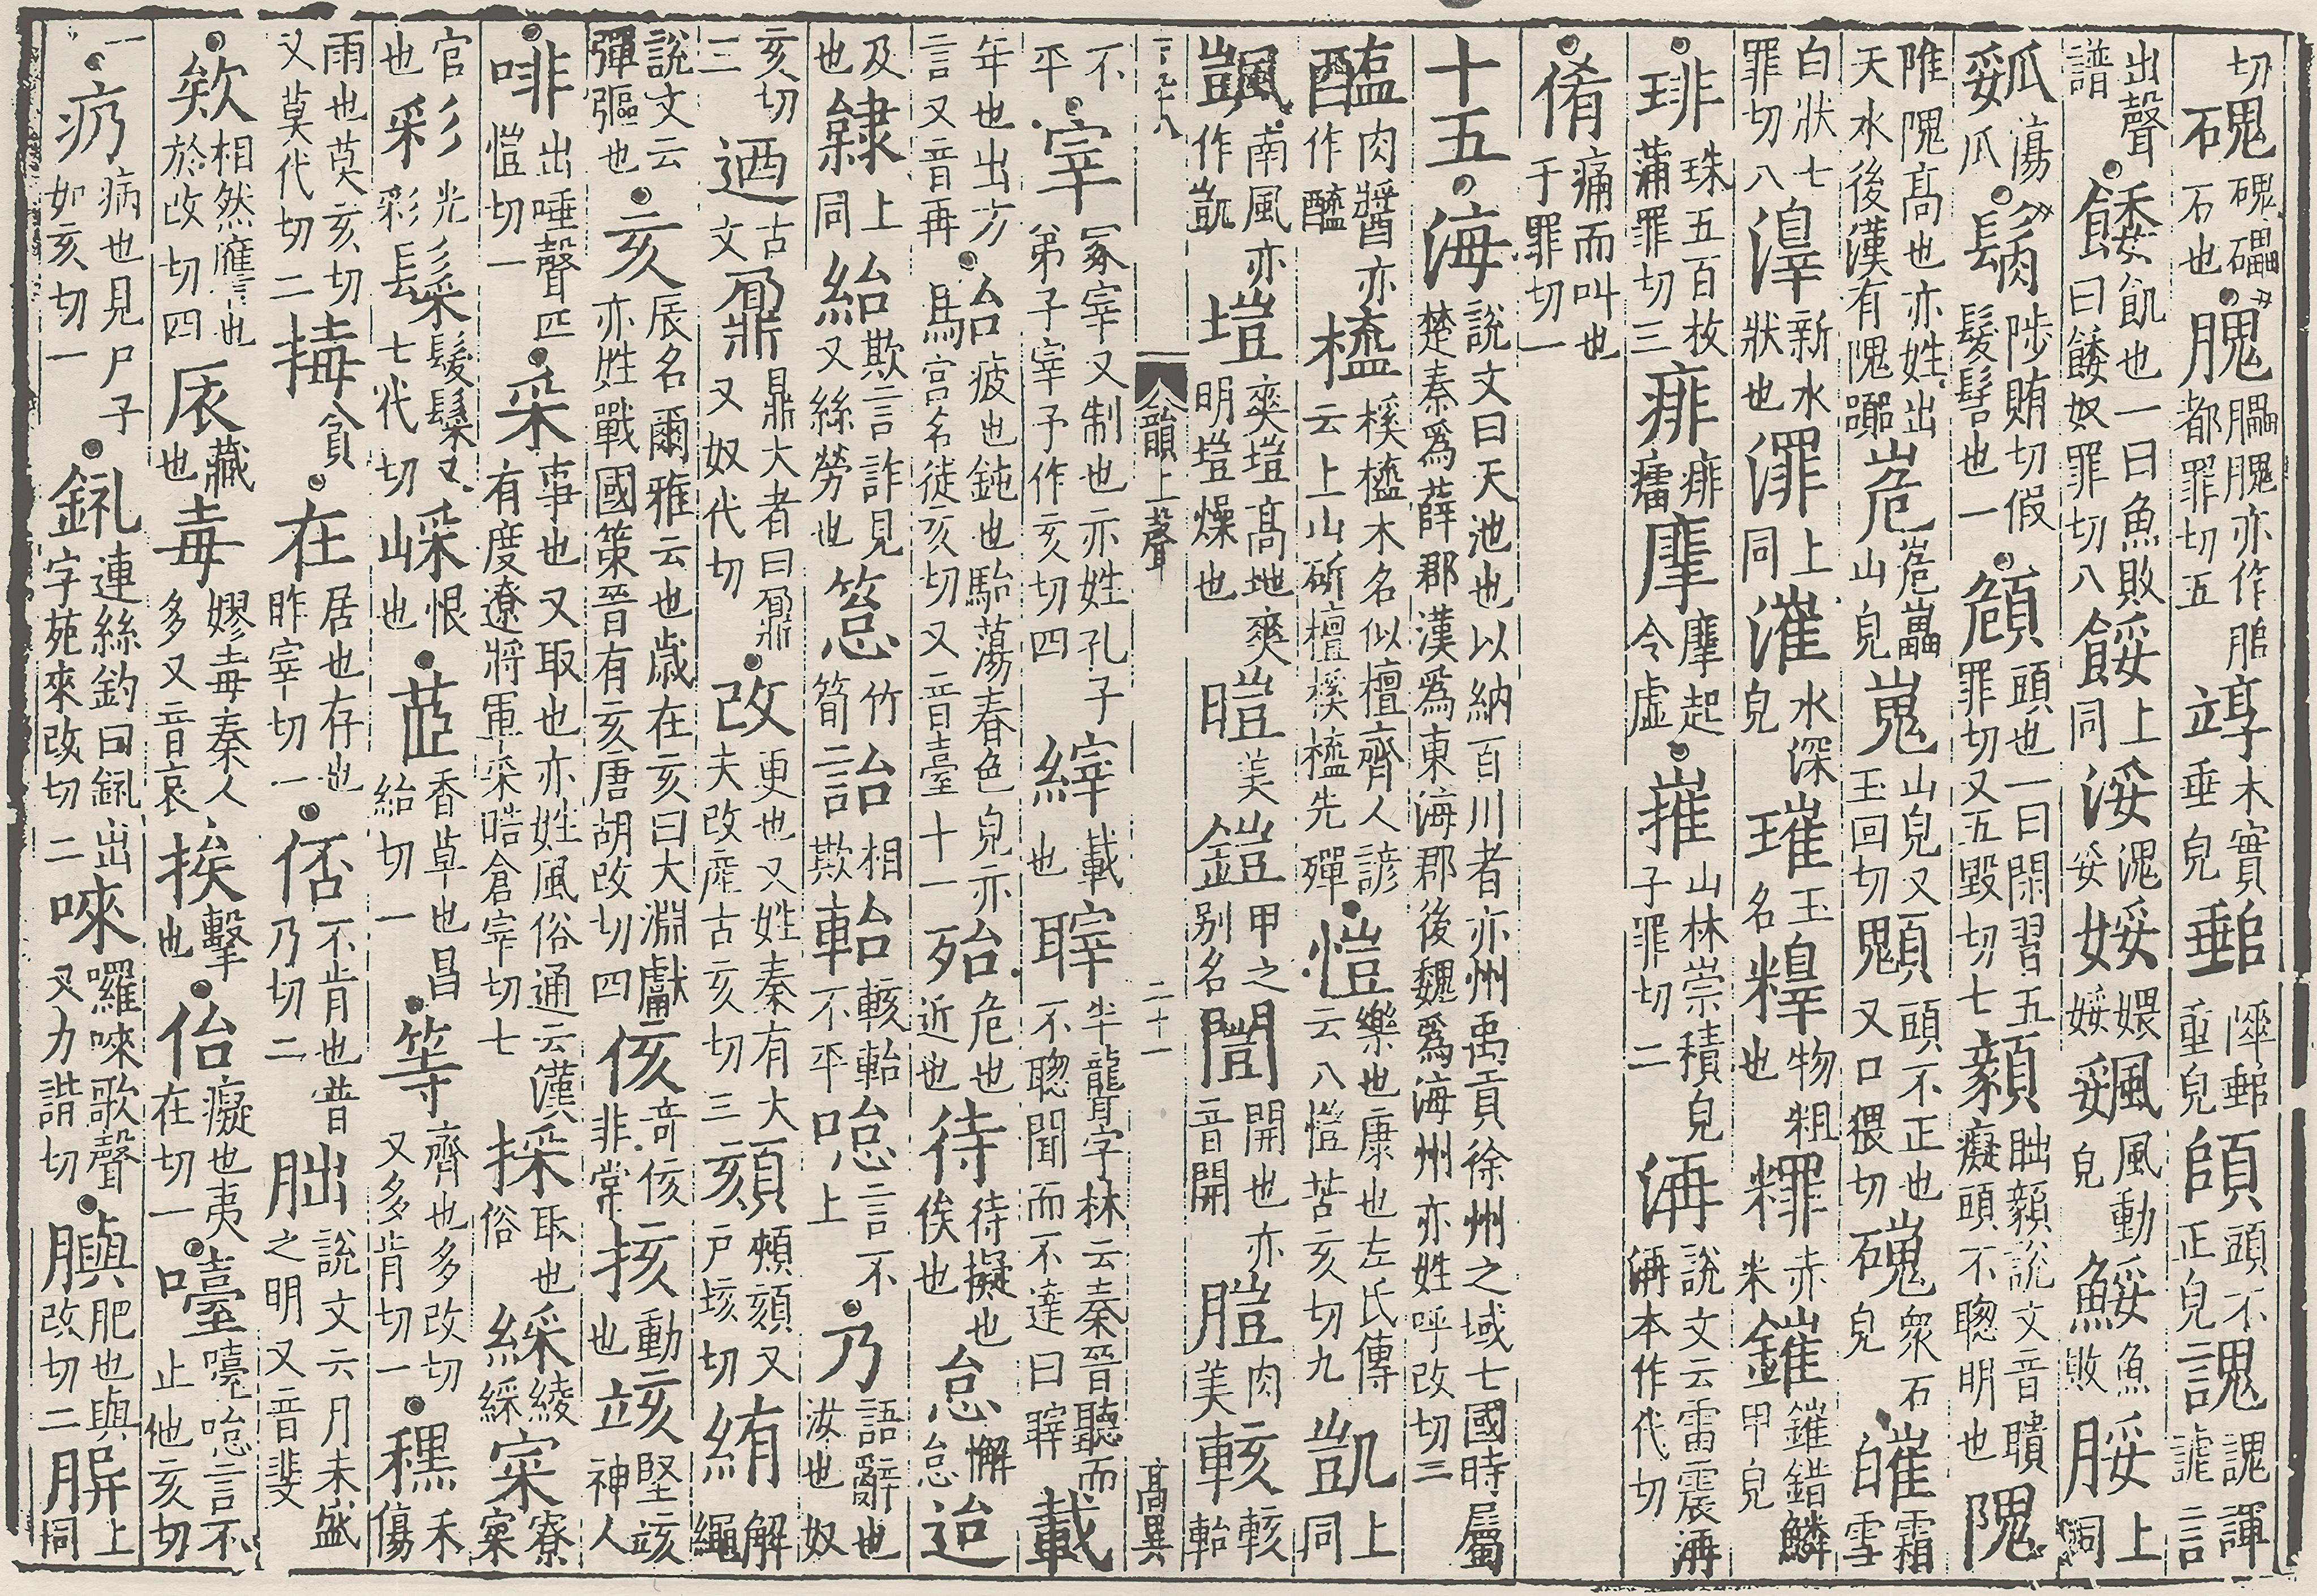 切磈磈礧石也腲腲腲亦作𦛨都罪切五䇏木實垂皃𨜏陮𨜏重皃頧頭不正皃䛼䛼諢諕言
出聲譜餧飢也一曰魚敗曰餧奴罪切八餒上同浽浽溾娞㛱娞䬐風動皃鮾魚敗脮上同
㼏傷瓜䯝陟賄切假髮髻也一頠頭也一曰閑習五罪切又五毀切七顡聉顡說文音聵癡頭不聰明也隗
陮隗高也亦姓出天水後漢有隗囂峞峞㠥山皃嵬山皃又玉回切顝頭不正也又口猥切磈衆石皃皠霜雪
白狀七罪切八𣽎新水狀也澤上同漼水深皃璀玉名𥼂物粗也𥽄赤米鏙鏙錯鱗甲皃
琲珠五百枚蒲罪切三痱痱癗㢡㢡起令虛㠑山林崇積皃子罪切二㴃說文云雷震㴃㴃本作代切
倄痛而叫也于罪切一
十五海說文曰天池也以納百川者亦州禹貢徐州之域七國時屬楚秦爲薛郡漢爲東海郡後魏爲海州亦姓呼改切三
醢肉醬亦作䤈榼榽榼木名似檀齊人諺云上山斫檀榽榼先殫愷樂也康也左氏傳云八愷苦亥切九凱上同
颽南風亦作凱塏爽塏高地爽明塏燥也暟美鎧甲之別名闓開也亦音開𦞄肉美䡗䡗軩
韻上聲 二十一 高異
不平宰冢宰又制也亦姓孔子弟子宰予作亥切四縡載也䏁半聾字林云秦晉聽而不聰聞而不達曰䏁載
年也出方言又音再駘疲也鈍也駘蕩春色皃亦馬宮名徒亥切又音臺十一殆危也近也待待擬也俟也怠懈怠迨
及也隸上同紿欺言詐見又絲勞也箈竹筍詒相欺軩䡗軩不平唸言不上乃語辭也汝也奴
亥切三迺古文鼐鼎大者曰鼐又奴代切改更也又姓秦有大夫改產古亥切三頦頰頦又戶垓切絠解繩
說文云彈彄也亥辰名爾雅云也歲在亥曰大淵獻亦姓戰國策晉有亥唐胡改切四侅奇侅非常㧡動也䇋堅䇋神人
啡出唾聲匹愷切一采事也又取也亦姓風俗通云漢有度遼將軍采皓倉宰切七採取也俗綵綾綵寀寮寀
官也彩光彩髮髮髮又七代切㥒恨也茝香草也昌紿切一等齊也多改切又多肯切一䆀禾傷
雨也莫亥切又莫代切二挴貪在居也存也昨宰切一㕻不肯也普乃切二朏說文云月未盛之明又音斐
欸相然應也於改切四扆藏也毐嫪毐秦人多又音哀挨擊也佁癡也夷在切一嚉嚉唸言不止他亥切
一疓病也見尸子如亥切一釠連絲釣曰釠出字苑來改切二唻囉唻歌聲又力諧切䑂肥也與改切二䐗上同